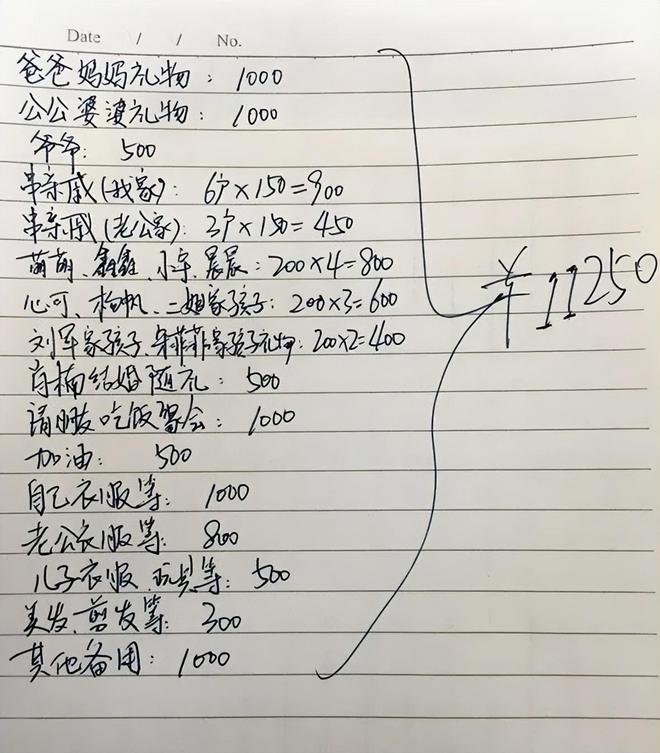 Date / / No.
爸爸妈妈礼物：1000
公公婆婆礼物：1000
爷爷：500
串亲戚(我家)：6户×150=900
串亲戚(老公家)：3户×150=450
萌萌、鑫鑫、小宇、晨晨：200×4=800
心可、柏帆、二姐家孩子：200×3=600
刘军家孩子、朱菲菲家孩子礼物：200×2=400
肖楠结婚随礼：500
请朋友吃饭聚会：1000
加油：500
自己衣服等：1000
老公衣服等：800
儿子衣服、玩具等：500
美发、剪发等：300
其他备用：1000
¥11250